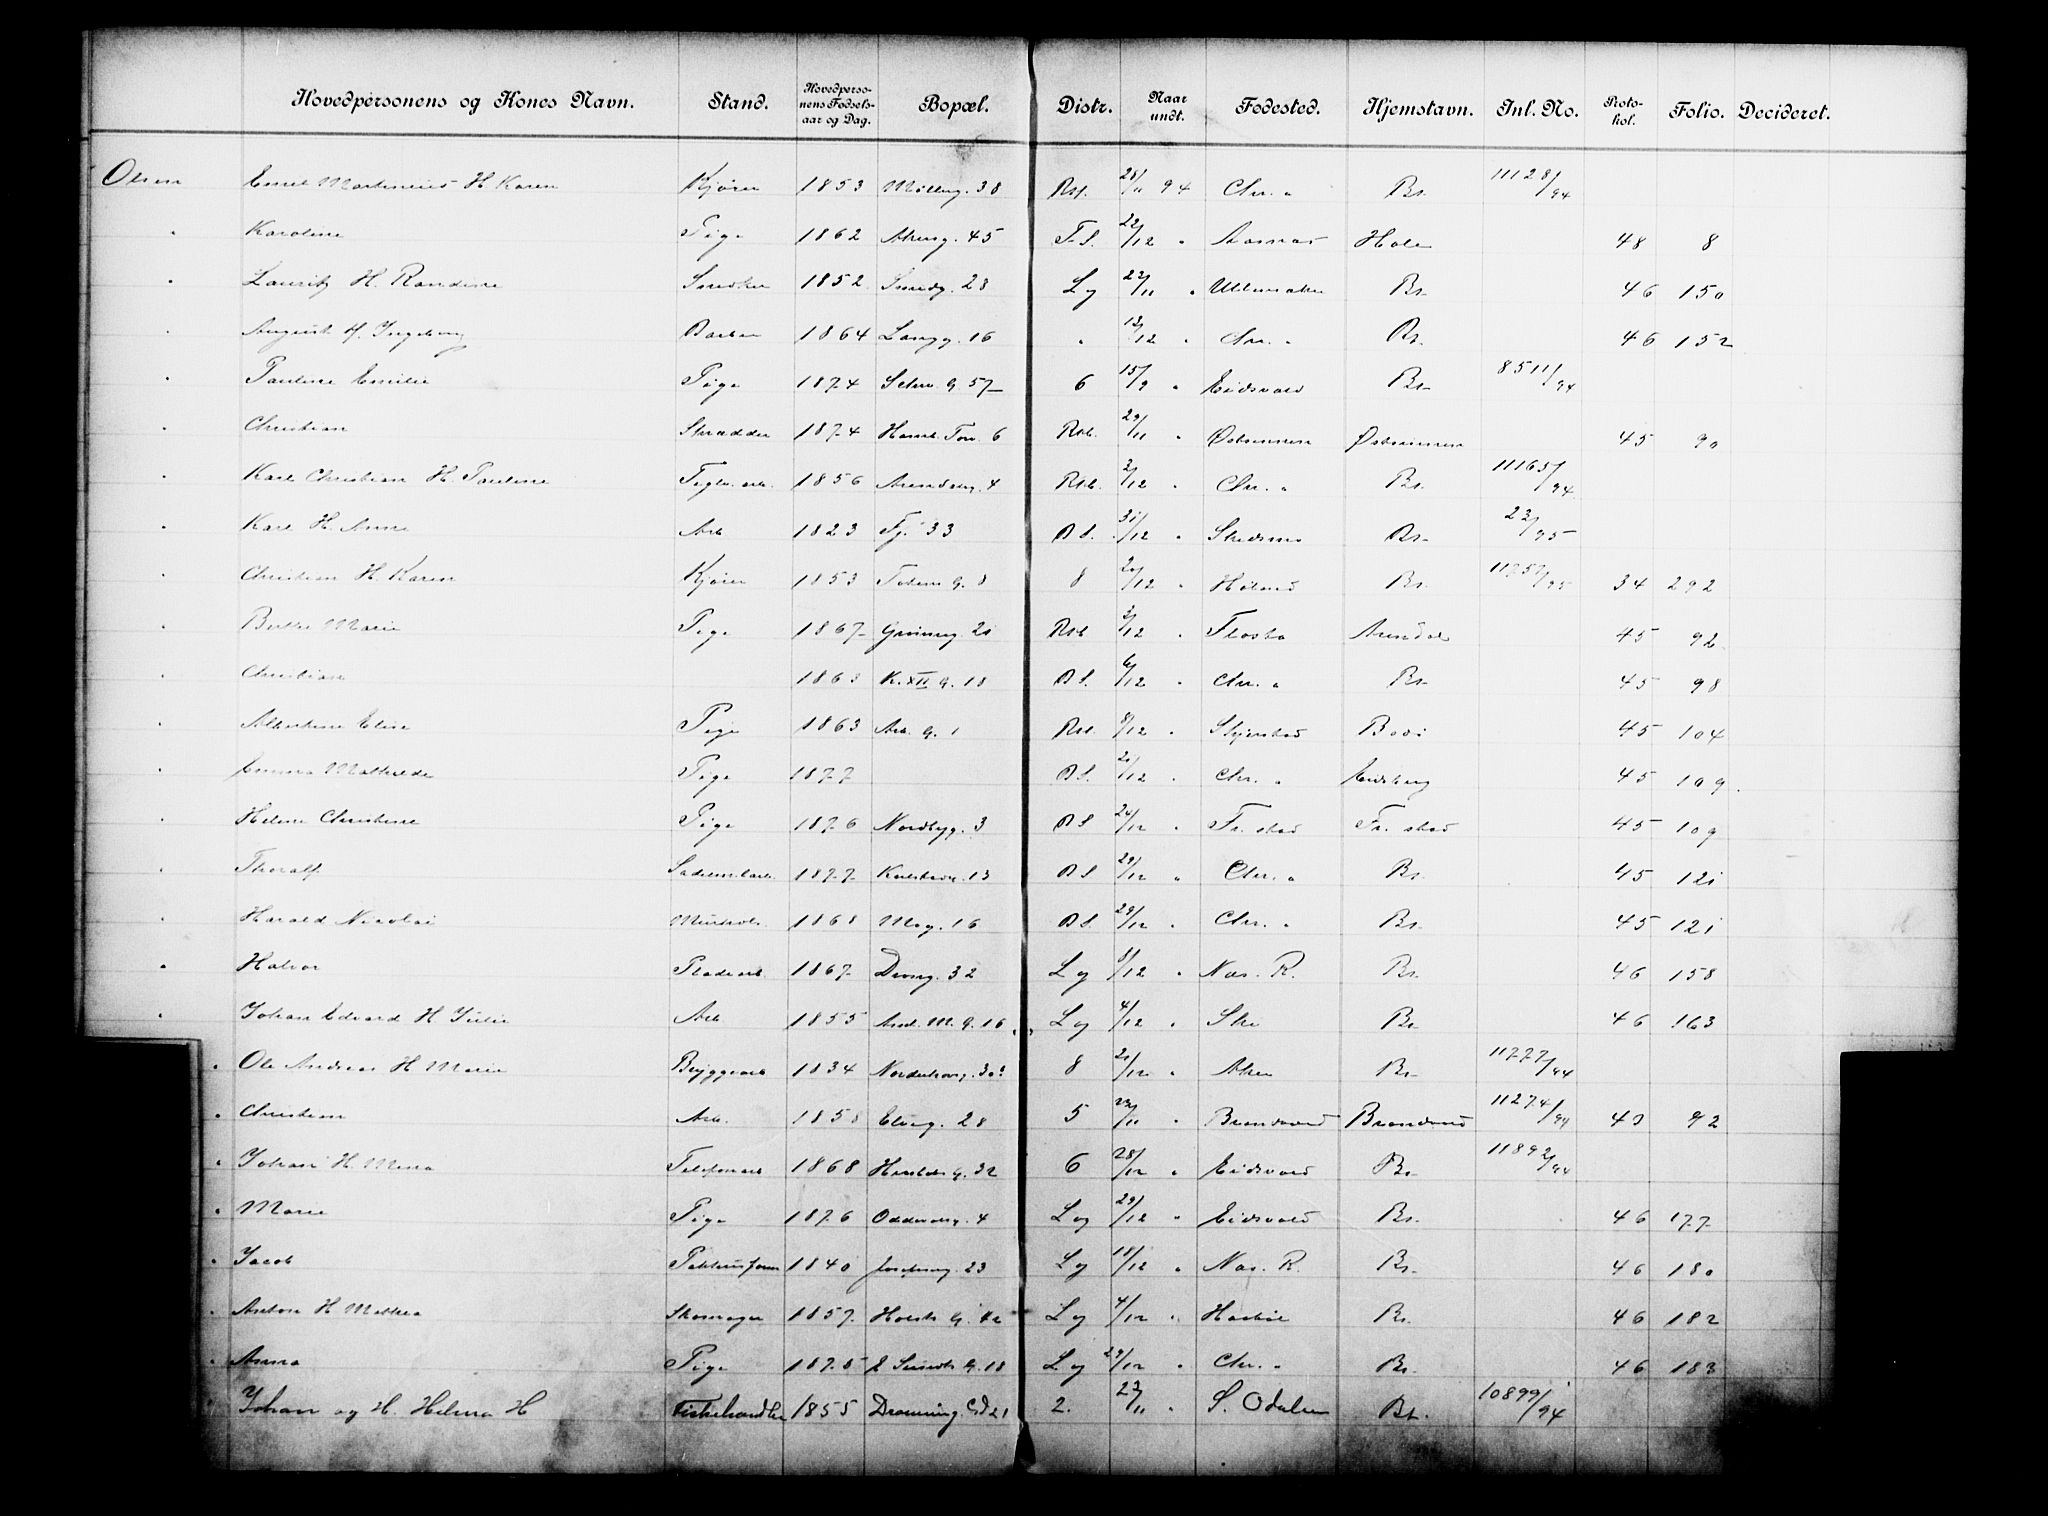 Hovedpersonens og Kones Navn. Stand. Hovedpersonens Fødselsaar og Dag. Bopæl. Distr. Naar undt. Fødested. Hjemstavn. Inl. No. Protokol. Folio. Decideret.
Olsen Emil Martinius H Karen Kjører 1853 Mølleng. 38 Rst. 28/11 94 Chr. " Br. 11128/94
" Karoline Pige 1862 Akersg. 45 F.S. 22/12 " Hole 48 8
" Lauritz H. Randine Snedker 1852 Smedg. 28 Lg 22/11 " Ullensaker Br. 46 150
" August H. Ingeborg 1864 Langg. 16 " 13/12 " Chr. " Br. 46 152
" Pauline Emilie Pige 1874 Schw. G. 57 6 15/9 " Eidsvold Br. 8511/94
" Christian Skrædder 1874 Hamb. Torv. 6 Rst. 29/11 " Østsinnen Østsinnen 45 90
" Karl Christian H. Pauline Teglv. arb. 1856 Arendalsg. 4 Rst. 2/12 " Chr. " Br. 11165/94
" Karl H. Anne Arb 1823 Tøj. 33 B S. 31/12 " Skedsmo Br. 23/95
" Christian H. Karen Kjører 1853 Totens G. 8 8 20/12 " Høland Br. 11757/95 34 292
" Berthe Marie Pige 1867 Grünerg. 21 Rst 3/12 " Flosta Arendal 45 92
" Christian 1863 K. XII G. 18 B S. 6/12 " Chr. " Br. 45 98
" Albertine Elise Pige 1863 Arb. G. 1 Rst. 8/12 " Skjerstad Bodø 45 104
" Emma Mathilde Pige 1877 B S. 21/12 " Chr. " Eidsberg 45 109.
" Helene Christine Pige 1876 Nordbyg. 3 B S 26/12 " Fr. stad Fr. stad 45 109
" Thoralf 1877 13 B S 29/12 " Chr. " Br. 45 121
" Harald Nicolai 1868 Mog. 16 B S. 29/12 " Chr. " Br. 45 121
" Halvor Pladearb 1867 Drong. 32 Lg 1/12 " Næs. R. Br. 46 158
" Johan Edvard H Julie Arb. 1855 And. M. G. 16 Lg 4/12 " Ski Br 46 163
" Ole Andreas H Marie Bryggearb 1834 Norderhovg. 30 8 21/12 " Aker Br. 11777/94
" Christian Arb. 1858 Elveg. 28 5 23/11 " Brandvold Brandvold 11274/94 43 92
" Johan H. Mina Telefonarb 1868 G. 32 6 28/12 " Eidsvold Br 11892/94
" Marie Pige 1876 Oddensg. 4 Lg 29/12 " Eidsvold Br. 46 177
" Jacob Pakhusform 1840 Josefinesg. 23 Lg 18/12 " Næs. R. Br. 46 180
" Anton H Mathea Skomager 1857 Holsts G. 4a Lg 4/12 " Br. 46 182
" Anna Pige 1875 E Sundts G. 18 Lg 29/12 " Chr. " Br. 46 183
" Johan og H. Helena H Fiskehandler 1855 Dronning. Gd 21 2. 23/11 S. Odalen Br. 10899/94